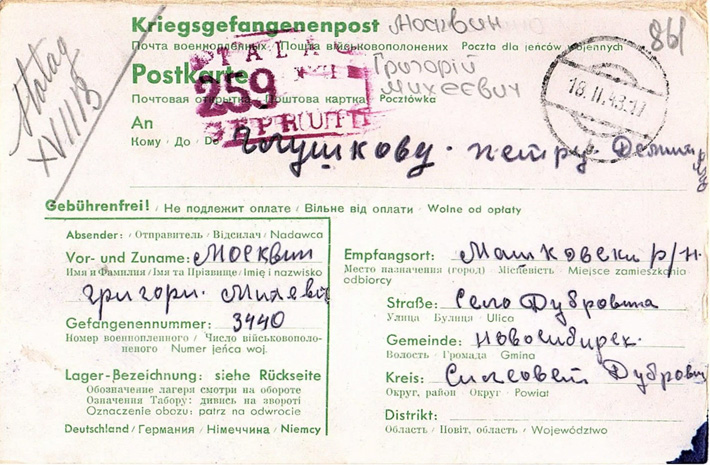 Kriegsgefangenenpost Москвин
Почта военнопленных / Пошта військовополонених Poczta dla jeńców wojennych
861
Stalag
XVII/B
STALAG XVII
259
GEPRÜFT
Postkarte Григорій
Михеєвич
Почтовая открытка / Поштова картка / Pocztówka
18.11.43.-17
An
Кому · До · Do
Глушкову. Петру
Gebührenfrei! / Не подлежит оплате / Вільне від оплати · Wolne od opłaty
Absender: / Отправитель / Відсилач / Nadawca
Vor- und Zuname: Москвин
Имя и Фамилия / Імя та Прізвище / Imię i nazwisko
григори.
Gefangenennummer: 3440
Номер военнопленного / Число військовополо-
неного Numer jeńca woj.
Lager-Bezeichnung: siehe Rückseite
Обозначение лагеря смотри на обороте
Означення Табору: дивись на звороті
Oznaczenie obozu: patrz na odwrocie
Deutschland / Германия / Німеччина / Niemcy
Empfangsort: р/н.
Место назначения (город) / Місцевість / Miejsce zamieszkania
odbiorcy
Straße: Село Дубровина
Улица Вулиця / Ulica
Gemeinde: Новосибирск.
Волость / Громада Gmina
Kreis: Сильсовет
Округ, район / Округ · Powiat
Distrikt:
Область / Повіт, область / Województwo